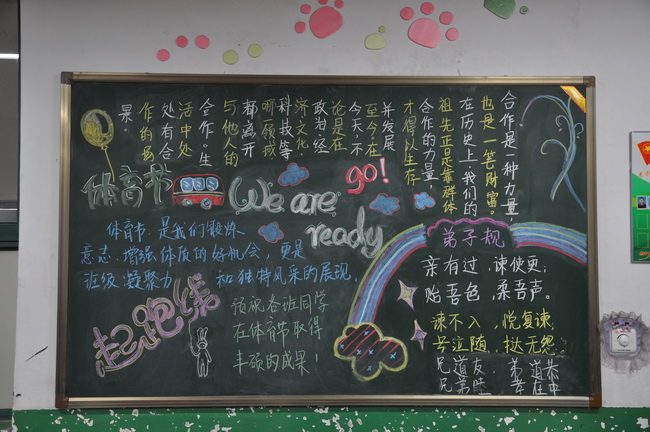 合作是一种力量,
也是一笔财富。
在历史上,我们的
祖先正是靠群体
合作的力量
才得以生存
并发展
至今在
今天,不
论是在
政治、经
济、文化
科技等
哪一领域
都离开
与他人的
合作。生
活中处
处有合
作的
果.
体育节
We are
go!
ready
体育节,是我们锻炼
意志,增强体质的好机会,更是
班级凝聚力 和独特风采的展现,
起跑线
预祝各班同学
在体育节取得
丰硕的成果!
弟子规
亲有过,谏使更,
怡吾色,柔吾声。
谏不入,悦复谏,
号泣随,挞无怨。
兄道友,弟道恭
兄弟睦,孝在中